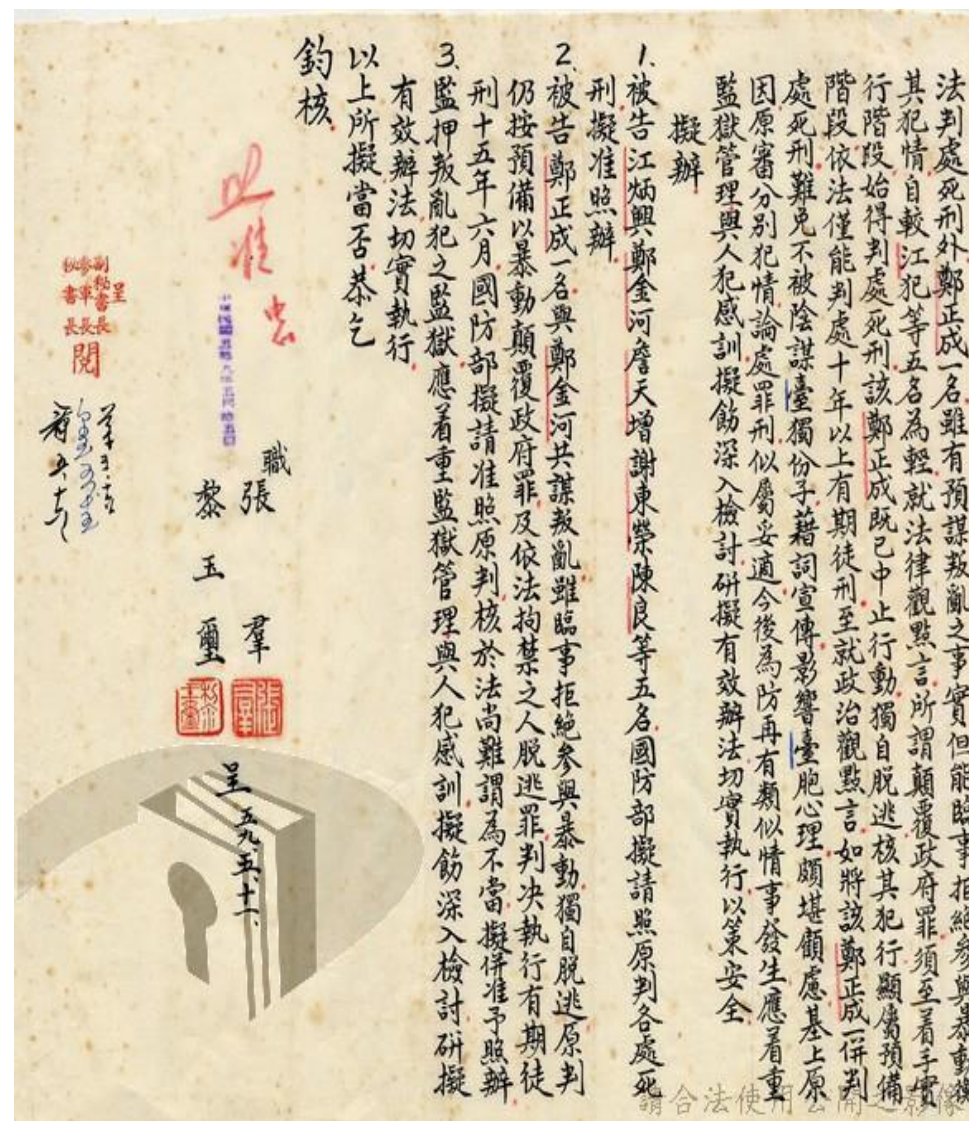 法判處死刑外鄭正成一名雖有預謀叛亂之事實但能臨事拒絕參與暴動核
其犯情自較江犯等五名為輕就法律觀點言所謂顛覆政府罪須至着手實
行階段始得判處死刑該鄭正成既已中止行動獨自脫逃核其犯行顯屬預備
階段依法僅能判處十年以上有期徒刑至就政治觀點言如將該鄭正成一併判
處死刑難免不被陰謀臺獨份子藉詞宣傳影響臺胞心理頗堪顧慮基上原
因原審分別犯情論處罪刑似屬妥適今後為防再有類似情事發生應着重
監獄管理與人犯感訓擬飭深入檢討研擬有效辦法切實執行以策安全
擬辦
1.被告江炳興鄭金河詹天增謝東榮陳良等五名國防部擬請照原判各處死
刑擬准照辦
2.被告鄭正成一名與鄭金河共謀叛亂雖臨事拒絕參與暴動獨自脫逃原判
仍按預備以暴動顛覆政府罪及依法拘禁之人脫逃罪判決執行有期徒
刑十五年六月國防部擬請准照原判核於法尚難謂為不當擬併准予照辦
3.監押叛亂犯之監獄應着重監獄管理與人犯感訓擬飭深入檢討研擬
有效辦法切實執行
以上所擬當否恭乞
鈞核
職
張羣
黎玉璽
呈 五九、五、十一、
呈
副秘書長
參軍長
秘書長
閱
請合法使用公開之影像